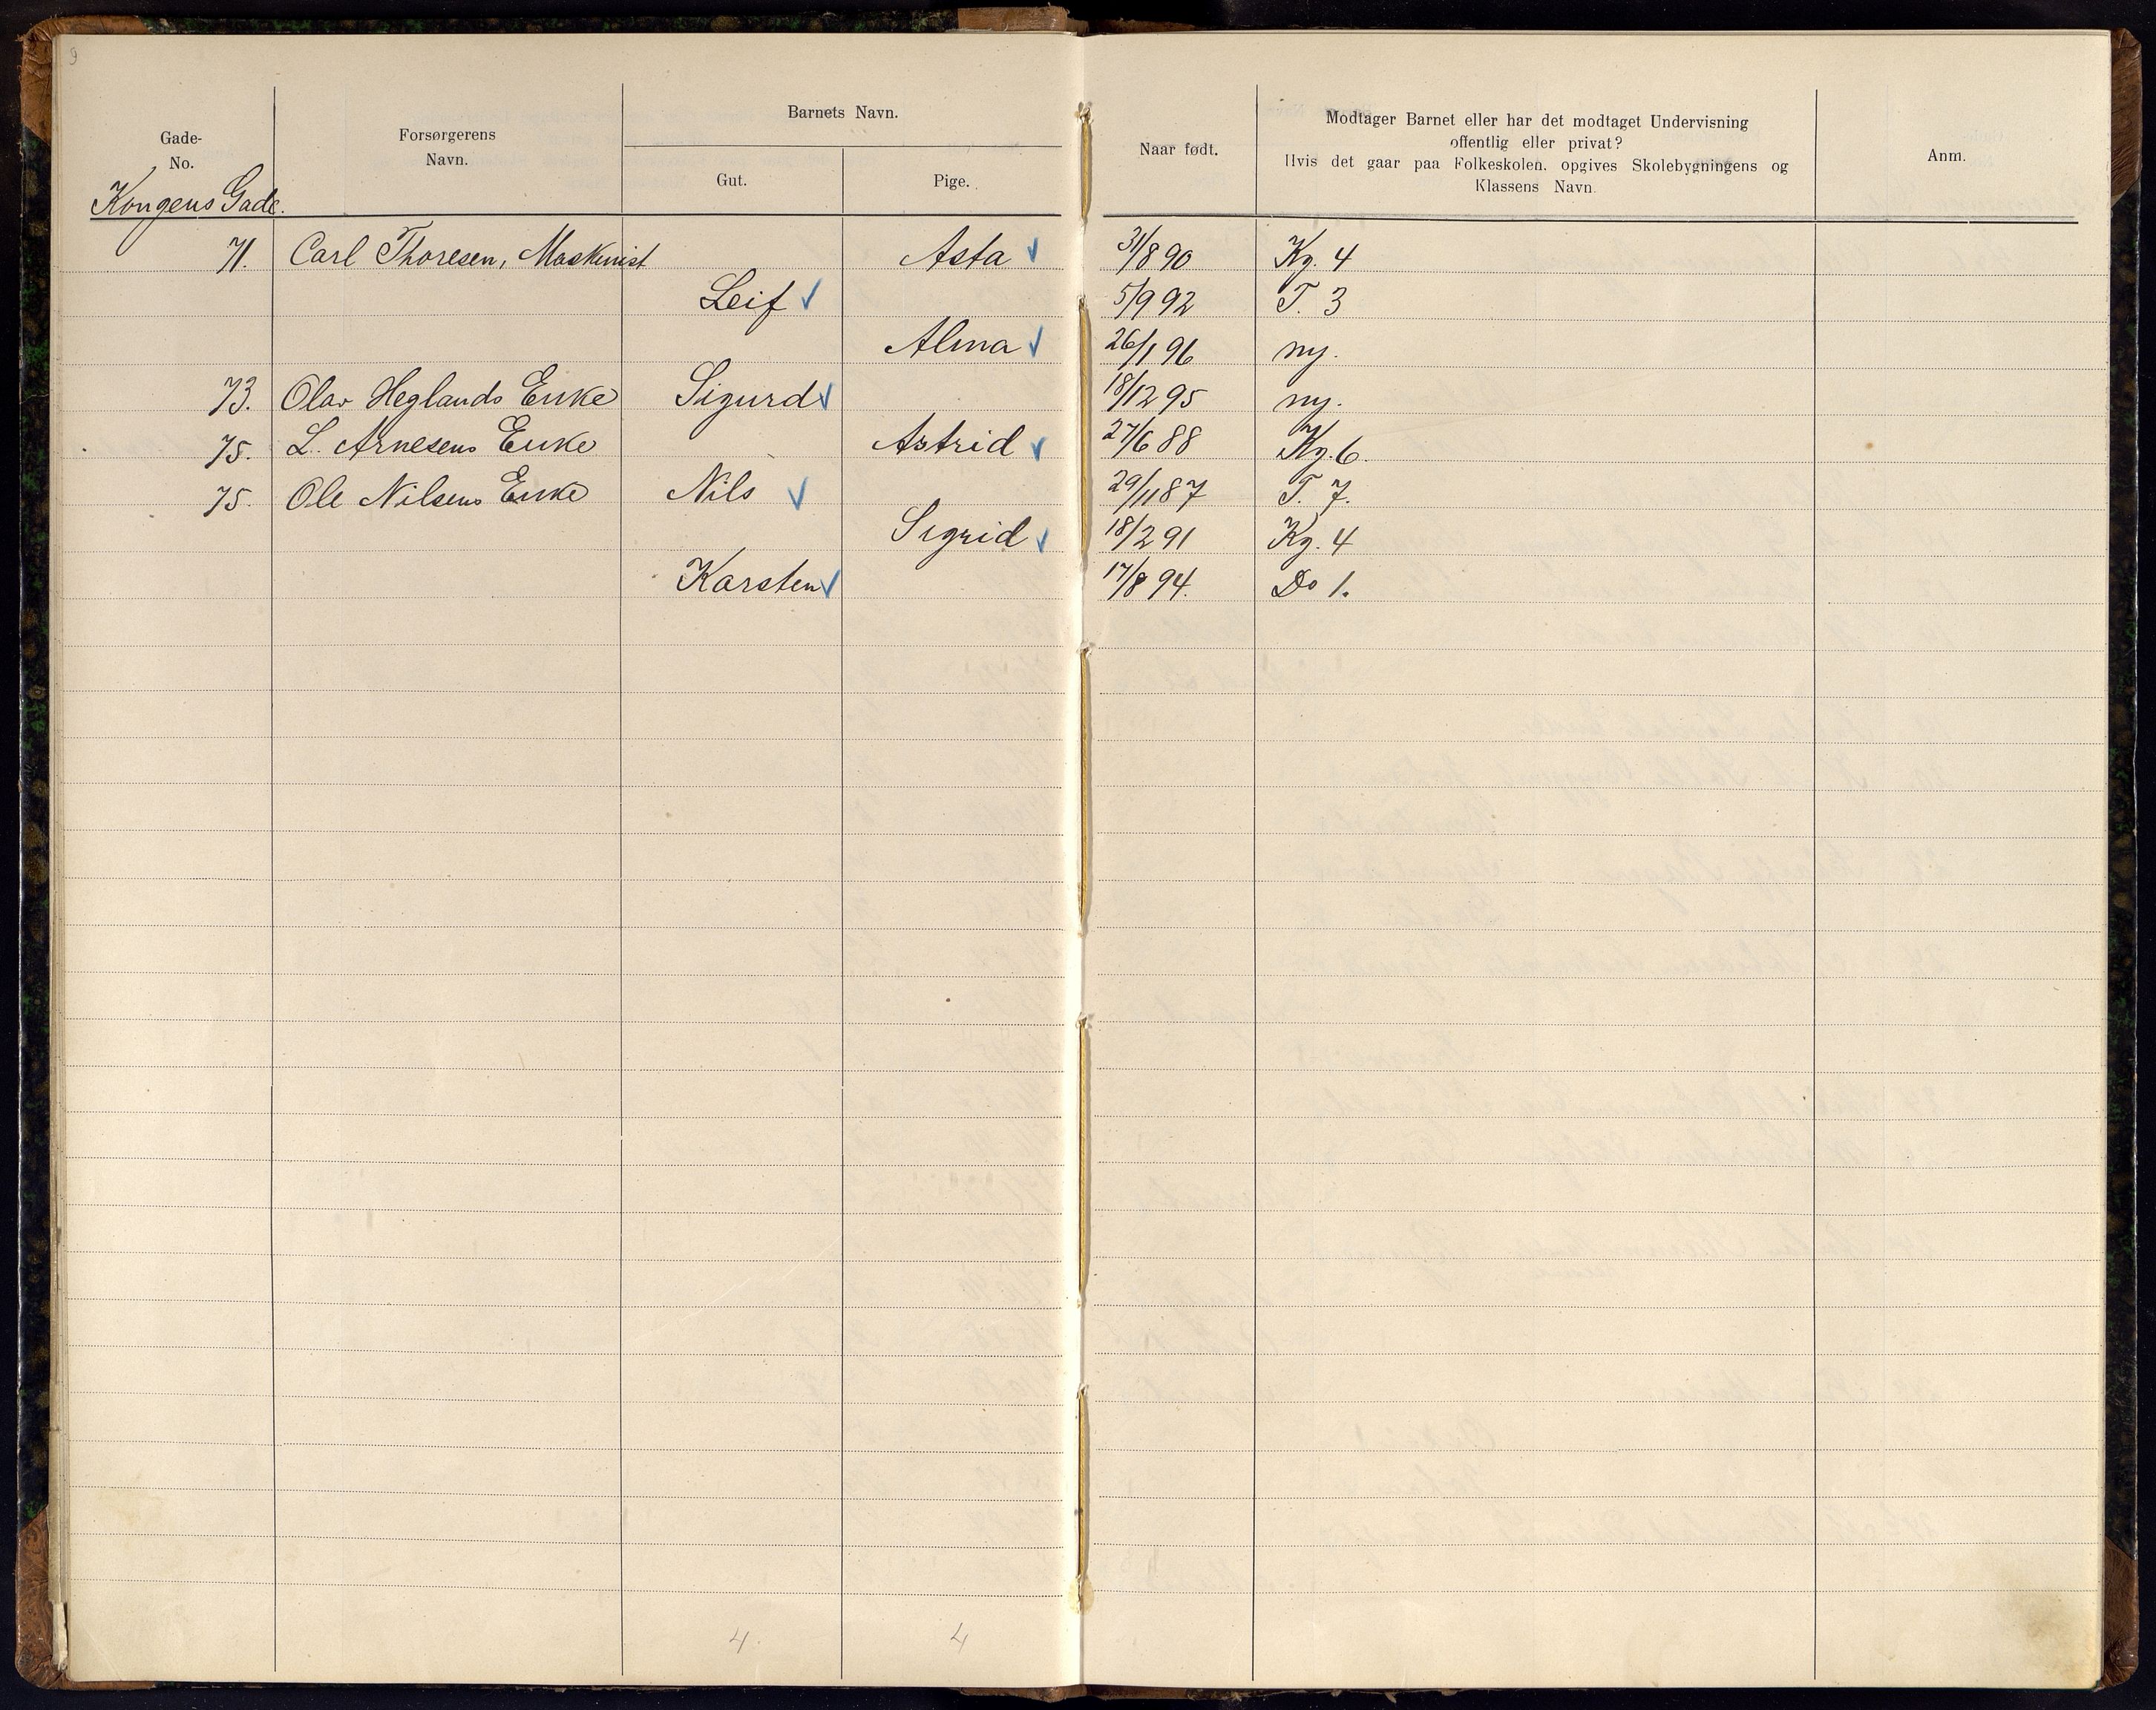 9
Barnets Navn.
Gade-
No.
Forsørgerens
Navn.
Gut.
Pige.
Naar født.
Modtager Barnet eller har det modtaget Undervisning
offentlig eller privat?
Hvis det gaar paa Folkeskolen, opgives Skolebygningens og
Klassens Navn.
Anm.
Kongens Gade.
71. Carl Thoresen, Maskinist Asta 31/8 90 Kg. 4
Leif 5/9 92 T. 3
Alma 26/1 96 ny.
73. Olav Heglands Enke Sigurd 18/12 95 ny.
75. L. Arnesens Enke Astrid 27/6 88 Kg. 6.
75. Ole Nilsens Enke Nils 29/11 87 T. 7.
Sigrid 18/2 91 Kg. 4
Karsten 17/8 94. Do 1.
4. 4